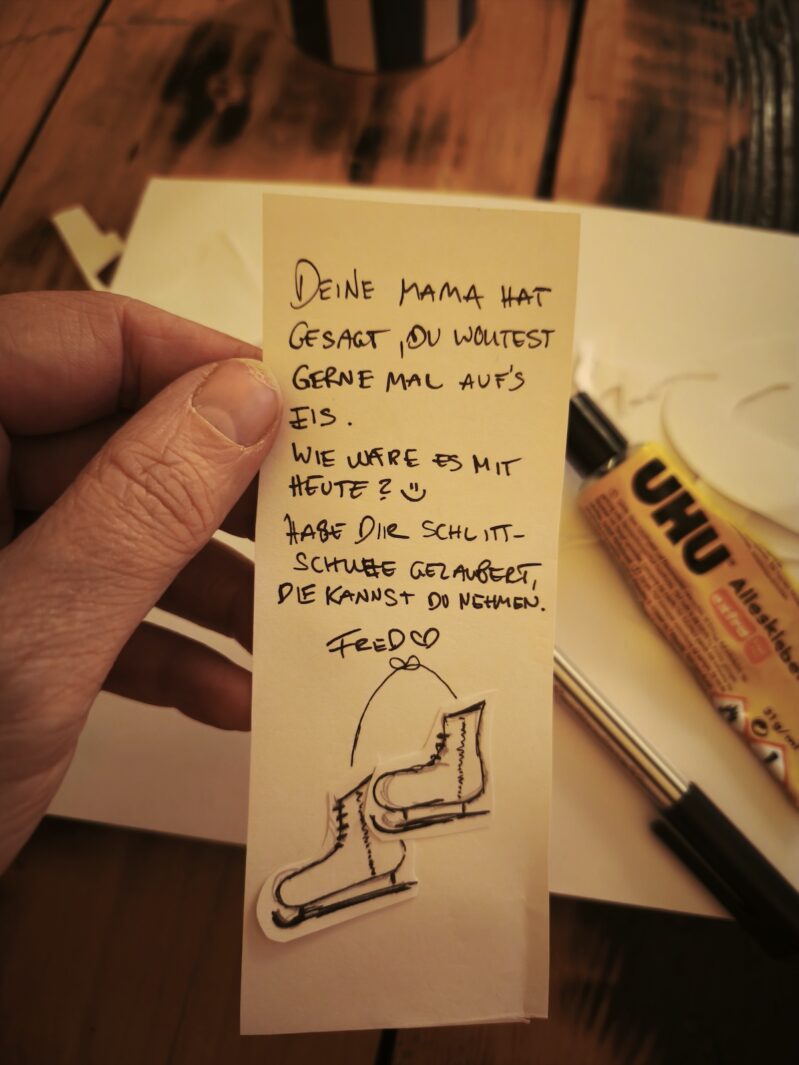 DEINE MAMA HAT
GESAGT, DU WOLLTEST
GERNE MAL AUF'S
EIS.
WIE WÄRE ES MIT
HEUTE? ☺
HABE DIR SCHLITT-
SCHUHE GEZAUBERT,
DIE KANNST DU NEHMEN.
FRED ♡
UHU
Alleskleber
extra
31g/